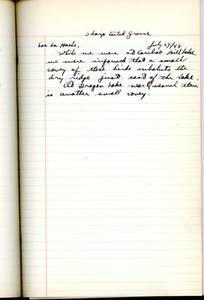 Sharp tailed Grouse
Lac La Hache, July 27/48
While we were at Cariboo
we were informed that a small
covey of these birds inhabits the
dry ridge just east of the lake.
At Dragon Lake near Quesnel there
is another small covey.